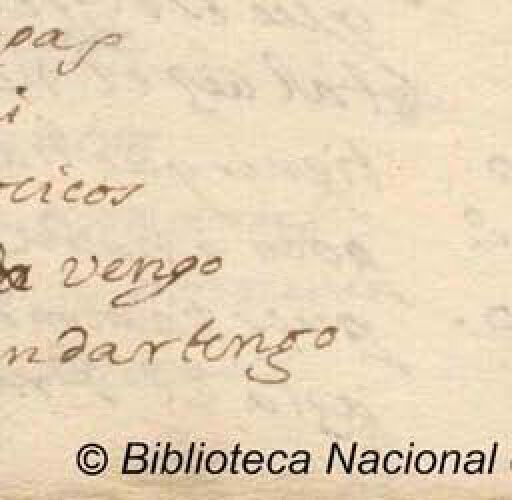 pap
i
ocicos
vengo
ndar tengo
© Biblioteca Nacional